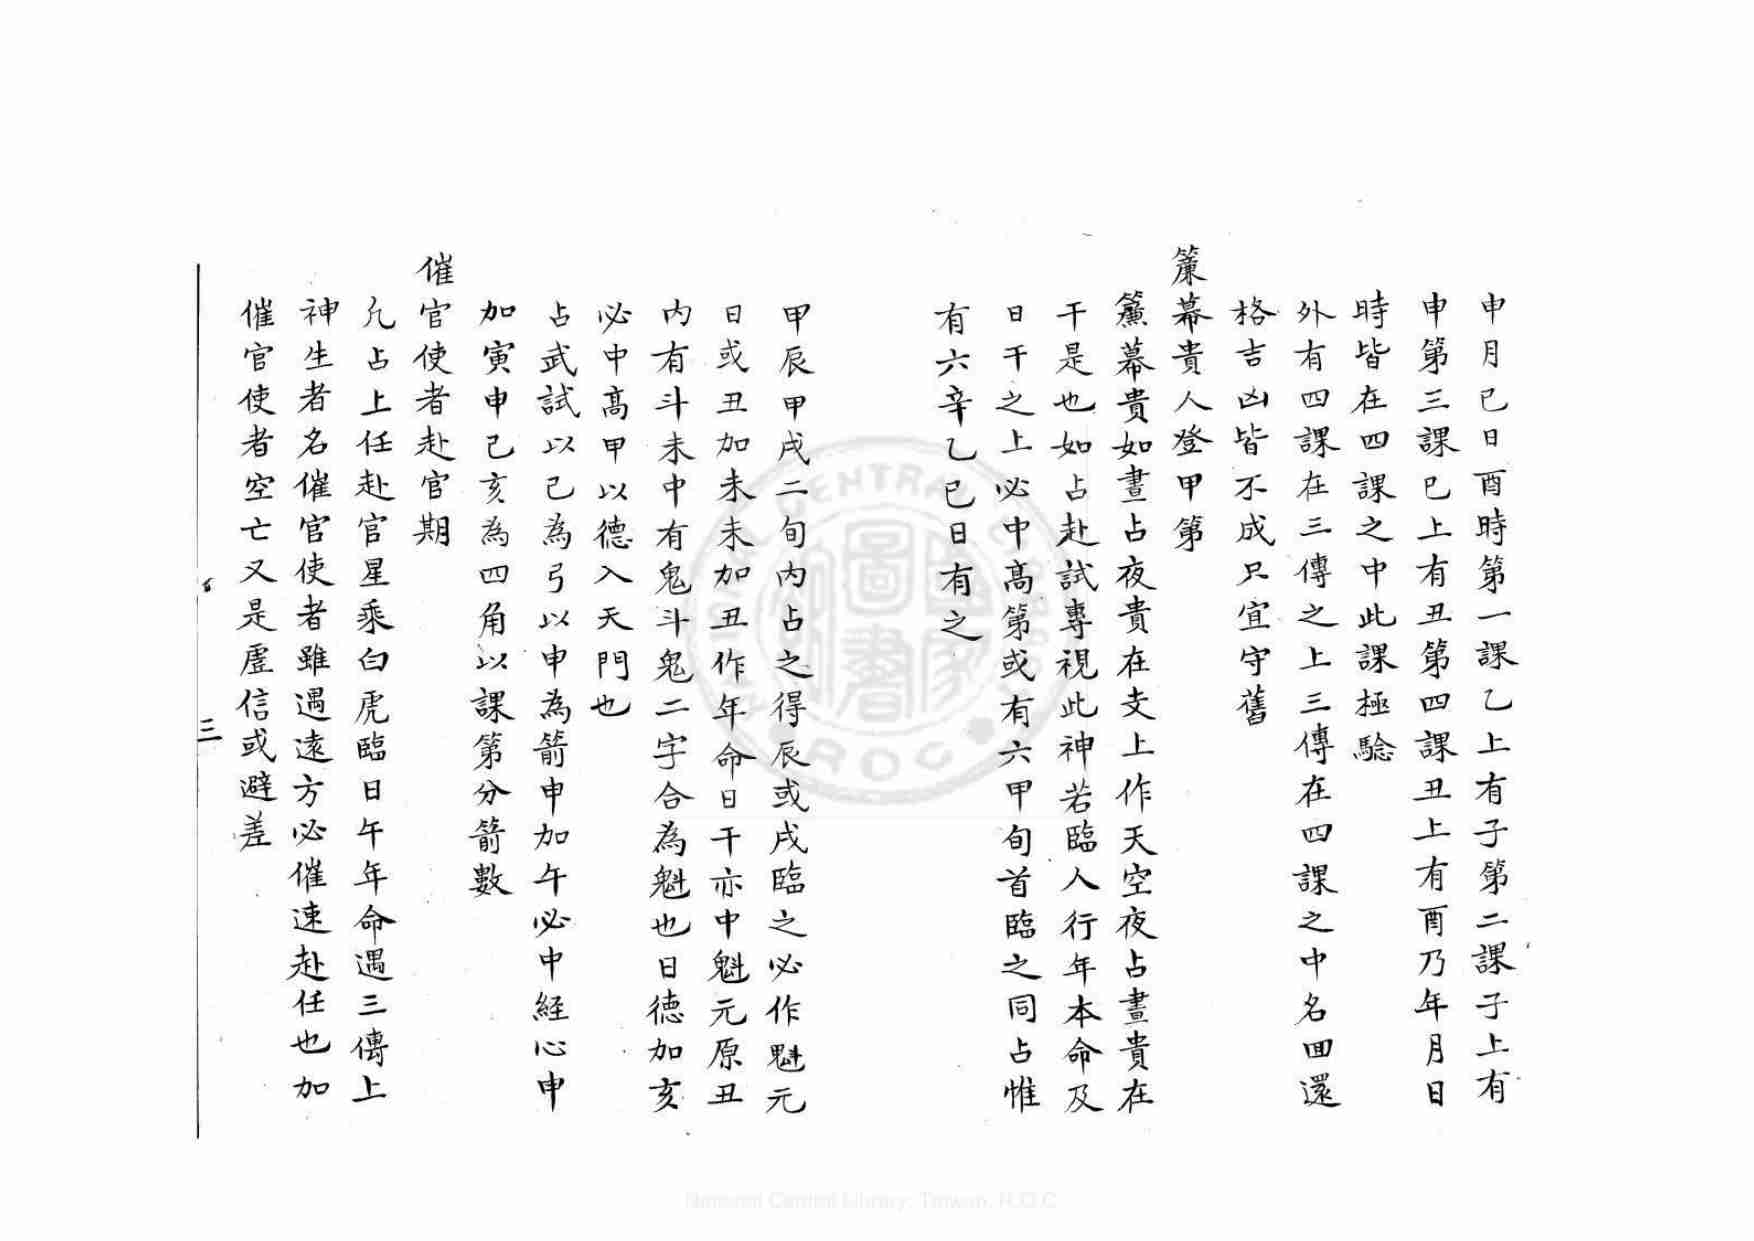 申月已日酉時第一課乙上有子第二課子上有
申第三課巳上有丑第四課丑上有酉乃年月日
時皆在四課之中此課極驗
外有四課在三傳之上三傳在四課之中名囬還
格吉凶皆不成只宜守舊
簾幕貴人登甲第
簾幕貴如晝占夜貴在支上作天空夜占晝貴在
干是也如占赴試專視此神若臨人行年本命及
日干之上必中髙第或有六甲旬首臨之同占惟
有六辛乙已日有之
甲辰甲戌二旬内占之得辰或戌臨之必作魁元
日或丑加未未加丑作年命日干亦中魁元原丑
内有斗未中有鬼斗鬼二字合為魁也日德加亥
必中髙甲以德入天門也
占武試以已為弓以申為箭申加午必中經心申
加寅申已亥為四角以課第分箭數
催官使者赴官期
凢占上任赴官星乘白虎臨日午年命遇三傳上
神生者名催官使者雖遇遠方必催速赴任也加
催官使者空亡又是虗信或避差
三
National Central Library, Taiwan, R.O.C
NATIONAL CENTRAL LIBRARY ROC
國家圖書館